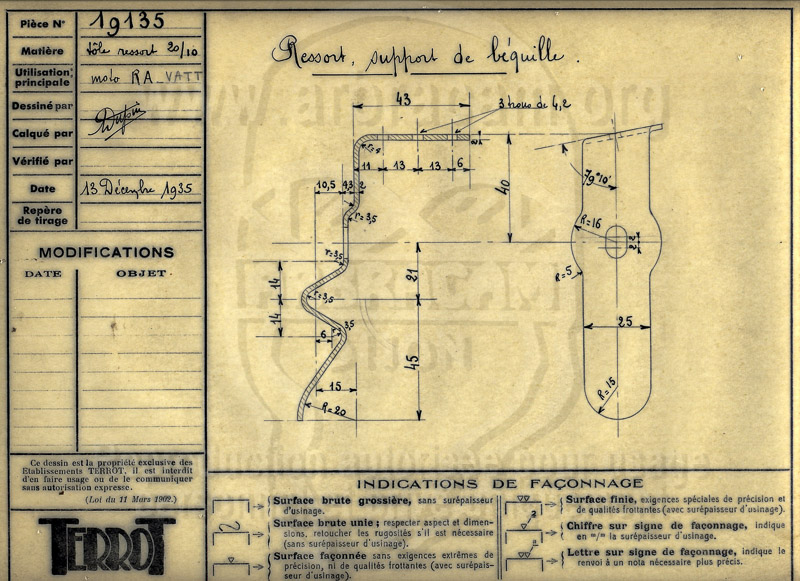 Pièce N° 19135
Matière tôle ressort 20/10
Utilisation principale moto RA_VATT
Dessiné par
Calqué par
Vérifié par
Date 13 Décembre 1935
Repère de tirage
MODIFICATIONS
DATE OBJET
Ce dessin est la propriété exclusive des
Etablissements TERROT, il est interdit
d'en faire usage ou de le communiquer
sans autorisation expresse.
(Loi du 11 Mars 1902.)
TERROT
Ressort, support de béquille.
43
3 trous de 4,2
r=4
2
11 13 13 6
10,5 4,3 2
r=3,5
40
r=3,5
14
21
r=3,5
14
3,5
6
45
15
R=20
79°10'
R=16
2,2 2,2
R=5
25
R=15
INDICATIONS DE FAÇONNAGE
Surface brute grossière, sans surépaisseur
d'usinage.
Surface brute unie; respecter aspect et dimen-
sions, retoucher les rugosités s'il est nécessaire
(sans surépaisseur d'usinage).
Surface façonnée sans exigences extrêmes de
précision, ni de qualités frottantes (avec surépais-
seur d'usinage).
Surface finie, exigences spéciales de précision et
de qualités frottantes (avec surépaisseur d'usinage).
2
Chiffre sur signe de façonnage, indique
en m/m la surépaisseur d'usinage.
a
Lettre sur signe de façonnage, indique le
renvoi à un nota nécessaire plus précis.